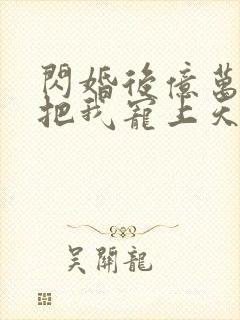 閃婚後億萬
把我寵上天
吳開龍